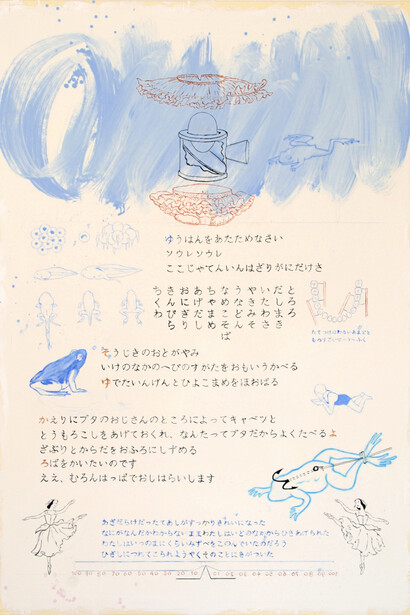 ゆうはんをあたためなさい
ソウレソウレ
ここじゃてんいんはざりがにだけさ
とろろ
だしまき
いたわさ
おにぎり
きんぴら
ちくわ
そうじきのおとがやみ
いけのなかのへびのすがたをおもいうかべる
ゆでたいんげんとひよこまめをほおばる
かえりにブタのおじさんのところによってキャベツと
とうもろこしをあげておくれ、なんたってブタだからよくたべるよ
ざぶりとからだをおふろにしずめる
ろばをかいたいのです
ええ、むろんはっぱでおしはらいします
あざだらけだったてあしがすっかりきれいになった
なにがなんだかわからないままわたしはいどのなかからひきあげられた
わたしはいつのまにくらいみずべをこのんでいたのだろう
ひざしにつれてこられようやくそのことにきがついた